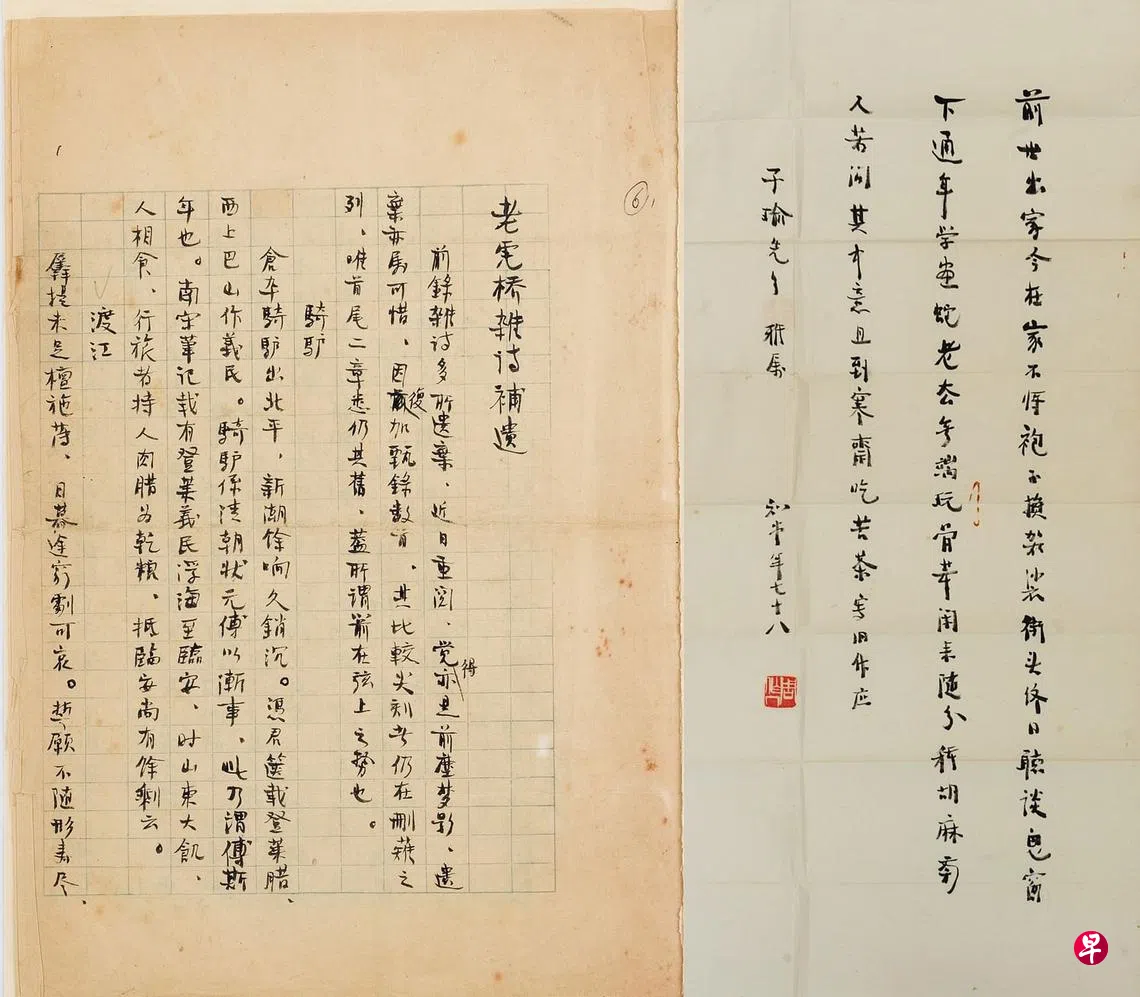 前世出家今在家不将袍子换袈裟街头终日聴谈鬼窗
下通年学画蛇老去无端玩骨董闲来随分种胡麻旁
人若问其中意且到寒齋吃苦茶写旧作应
子瑜先生 雅属
知堂年七十八
6
老虎桥雑诗補遗
前錄雑诗多所遗棄、近日重阅、觉得亦是前塵梦影、遗
棄亦属可惜、因復加甄錄数首。其比較尖刻者仍在删薙之
列、唯首尾二章悉仍其舊、蓋所谓箭在弦上之势也。
騎驴
倉卒騎驴出北平、新潮餘响久銷沉。憑君箧载登莱腊、
西上巴山作義民。騎驴係清朝状元傅以渐事、此乃谓傅斯
年也。南宋筆记载有登莱義民浮海至臨安、时山東大飢、
人相食、行旅者持人肉腊为乾糧、抵臨安尚有餘剩云。
渡江
羼提未足檀施薄、日暮途穷劇可哀。誓願不随形寿尽、
早